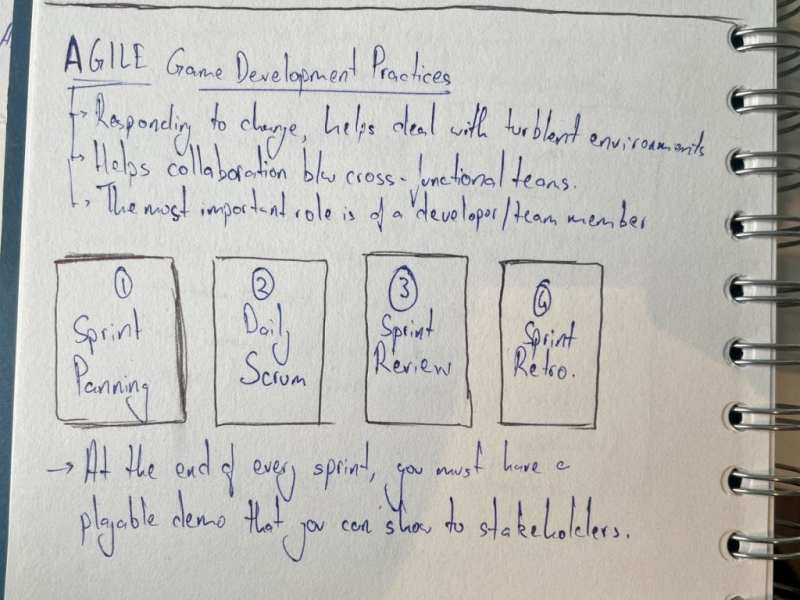 AGILE Game Development Practices
→ Responding to change, helps deal with turblent environments
→ Helps collaboration b/w cross-functional teams.
→ The most important role is of a developer/team member
① Sprint Panning
② Daily Scrum
③ Sprint Review
④ Sprint Retro.
→ At the end of every sprint, you must have a
playable demo that you can show to stakeholders.